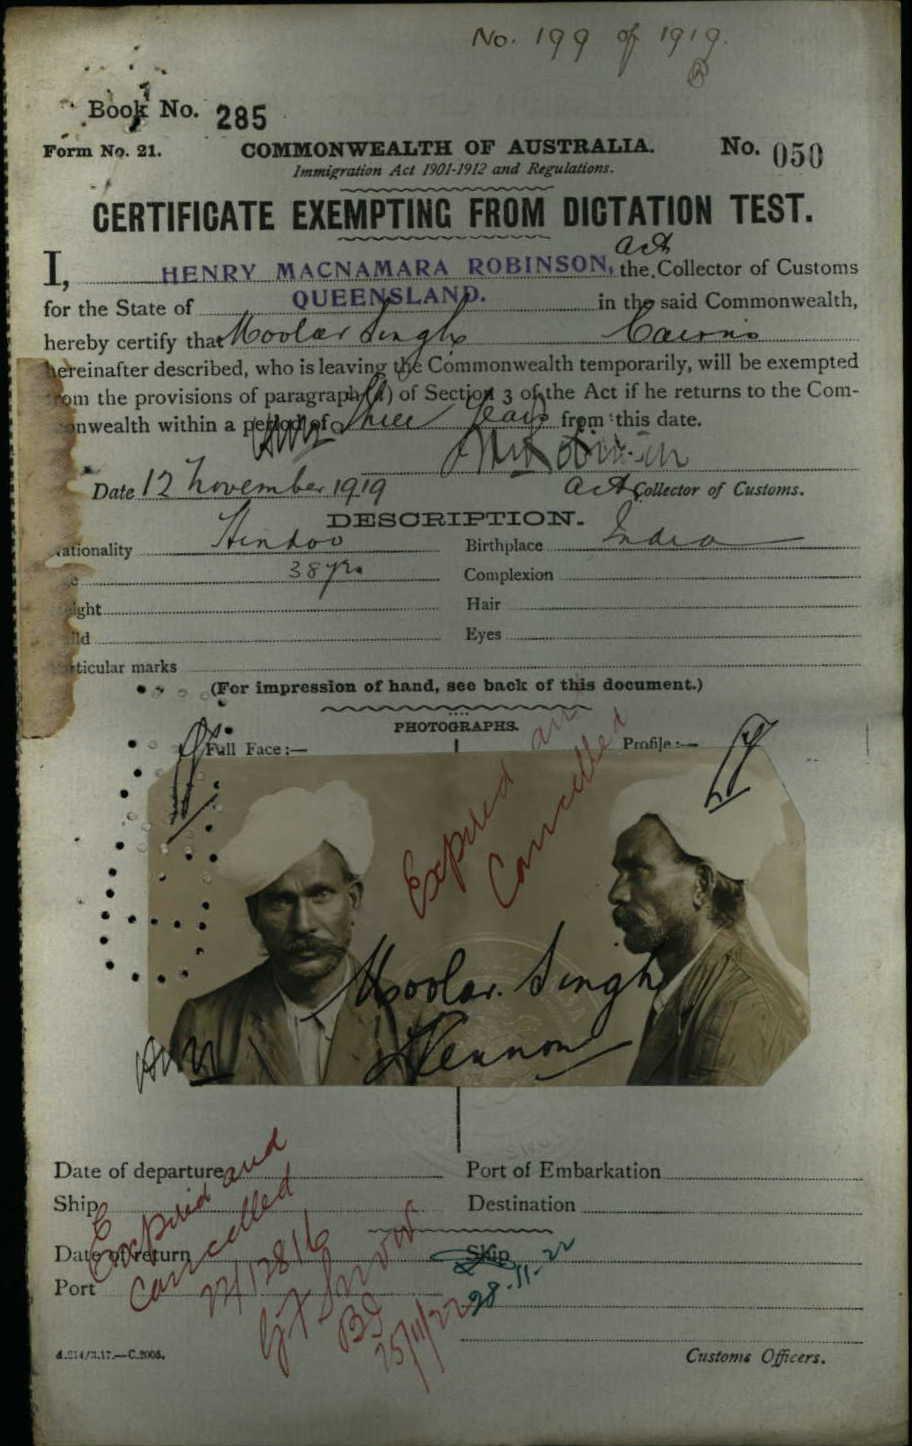 No. 199 of 1919.
Book No. 285
Form No. 21. COMMONWEALTH OF AUSTRALIA. No. 050
Immigration Act 1901-1912 and Regulations.
CERTIFICATE EXEMPTING FROM DICTATION TEST.
act
I, HENRY MACNAMARA ROBINSON, the Collector of Customs
for the State of QUEENSLAND. in the said Commonwealth,
hereby certify that Moolar Singh Cairns
hereinafter described, who is leaving the Commonwealth temporarily, will be exempted
from the provisions of paragraph (a) of Section 3 of the Act if he returns to the Com-
monwealth within a period of Three Years from this date.
Date 12 November 1919 Act Collector of Customs.
DESCRIPTION.
Nationality Hindoo Birthplace India
38 yrs Complexion
Height Hair
Build Eyes
Particular marks
(For impression of hand, see back of this document.)
PHOTOGRAPHS.
Full Face:— Profile:—
Expired and
Cancelled
Moolar Singh
Date of departure Port of Embarkation
Ship Destination
Date of return Ship
Port 28-11-22
Expired and
Cancelled
22/12816
25/11/22
Customs Officers.